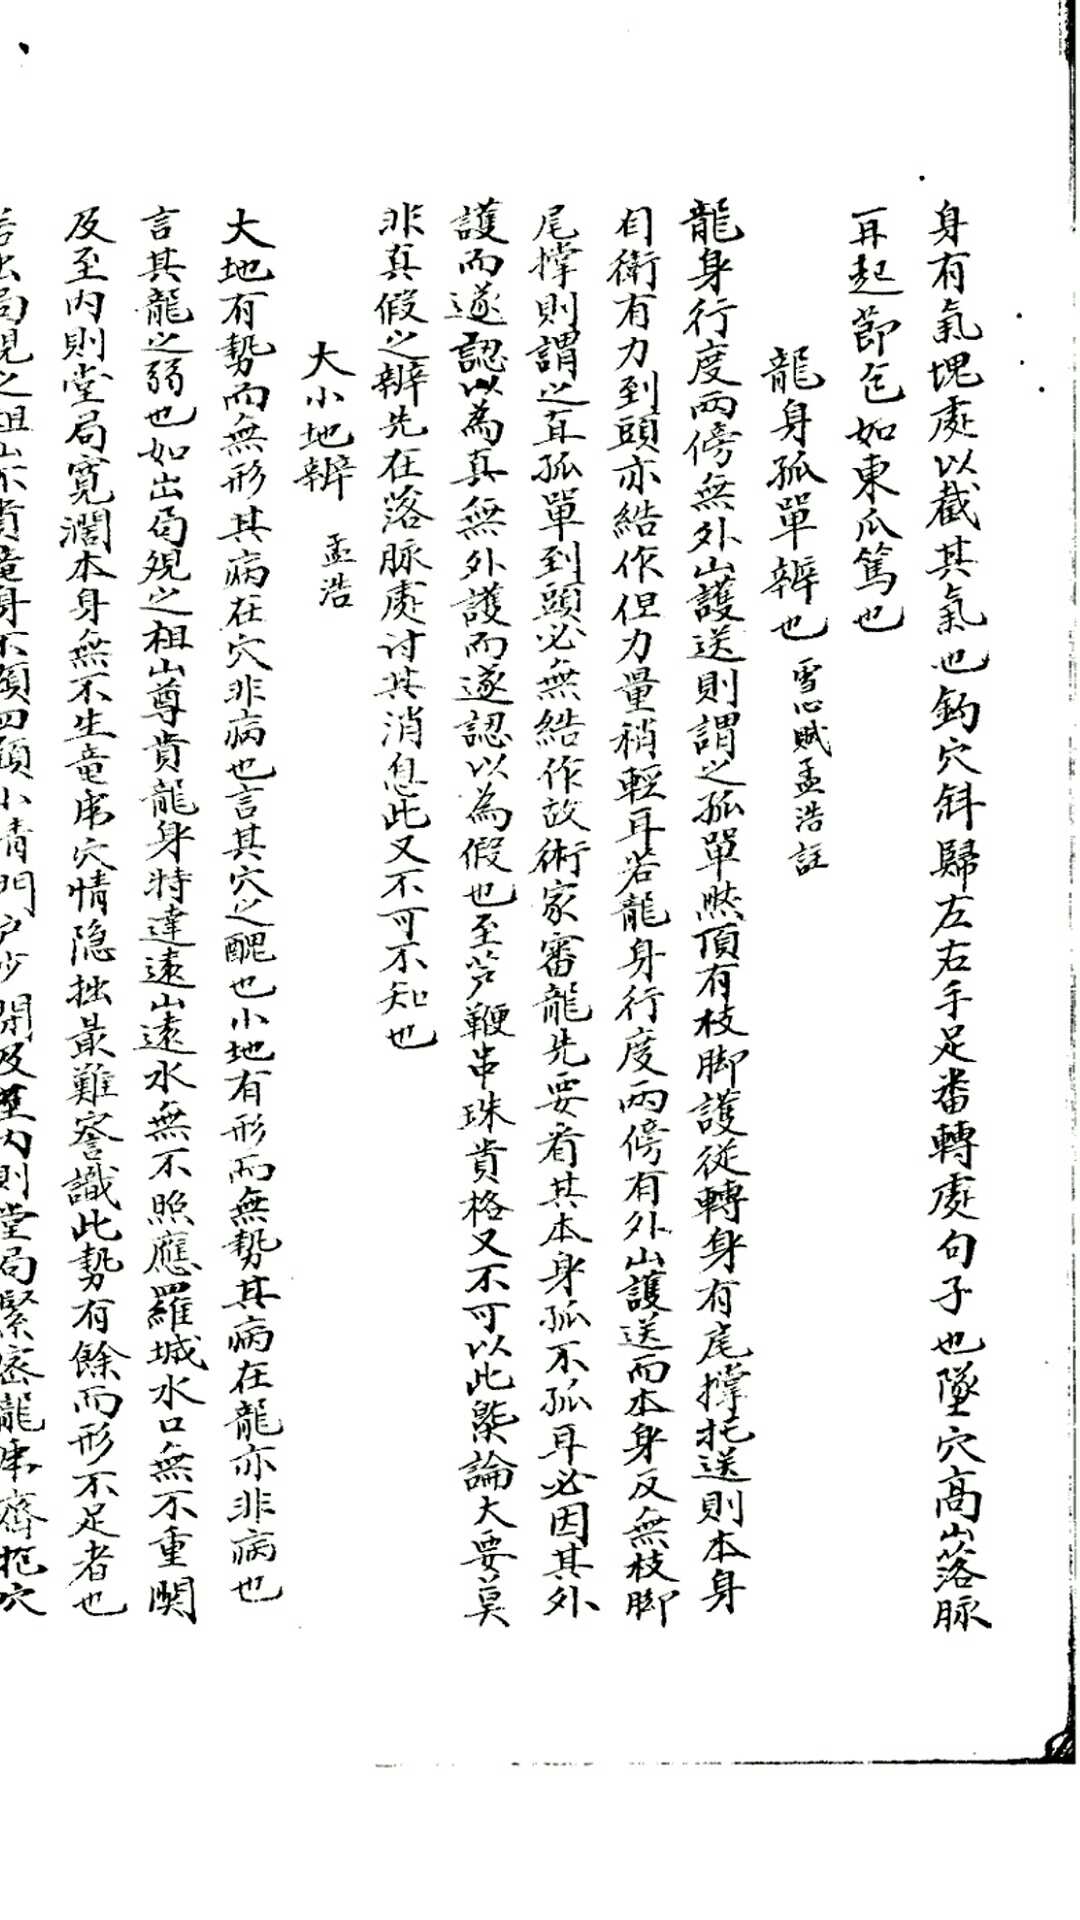 身有氣塊處以截其氣也鈎穴斜歸左右手足番轉處句子也墜穴高山落脉
耳起節包如東瓜篤也
龍身孤單辨也 雪心賦孟浩註
龍身行度兩傍無外山護送則謂之孤單然頂有枝脚護從轉身有尾撑托送則本身
自衛有力到頭亦結作但力量稍輕耳若龍身行度兩傍有外山護送而本身反無枝脚
尾撑則謂之真孤單到頭必無結作故術家審龍先要看其本身孤不孤耳必因其外
護而遂認以為真無外護而遂認以為假也至芦鞭串珠貴格又不可以此槩論大要莫
非真假之辨先在落脉處討其消息此又不可不知也
大小地辨 孟浩
大地有勢而無形其病在穴非病也言其穴之醜也小地有形而無勢其病在龍亦非病也
言其龍之弱也如出局覌之祖山尊貴龍身特達遠山遠水無不照應羅城水口無不重関
及至内則堂局寛濶本身無不生竜虎穴情隐拙最難詧識此勢有餘而形不足者也
若出局覌之祖山不貴竜身不顕四顧小情門户少関及至内則堂局緊密龍虎齊抱穴